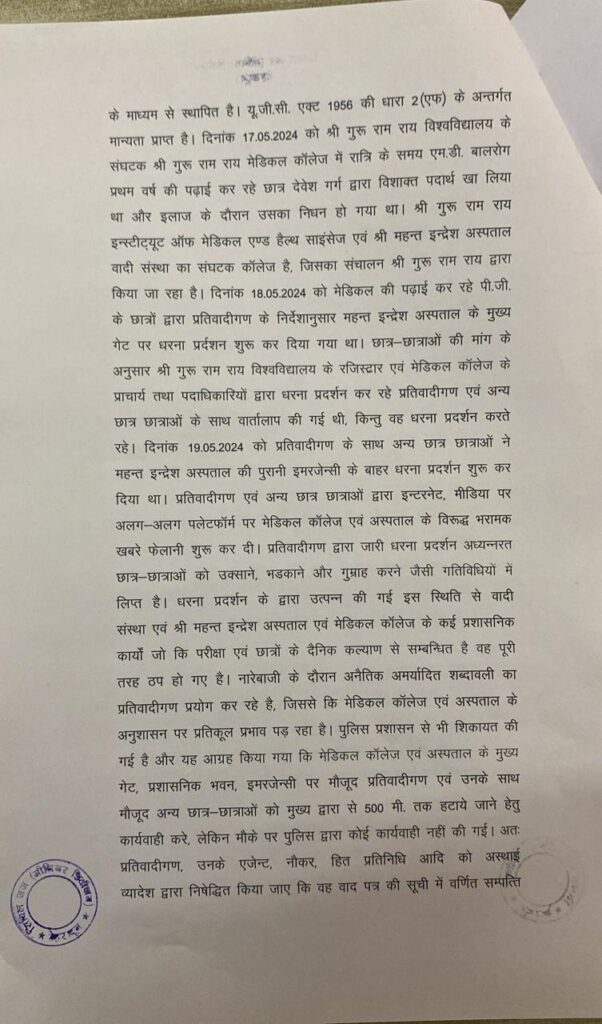 के माध्यम से स्थापित है। यू.जी.सी. एक्ट 1956 की धारा 2(एफ) के अन्तर्गत
मान्यता प्राप्त है। दिनांक 17.05.2024 को श्री गुरू राम राय विश्वविद्यालय के
संघटक श्री गुरू राम राय मेडिकल कॉलेज में रात्रि के समय एम.डी. बालरोग
प्रथम वर्ष की पढ़ाई कर रहे छात्र देवेश गर्ग द्वारा विशाक्त पदार्थ खा लिया
था और इलाज के दौरान उसका निधन हो गया था। श्री गुरू राम राय
इन्स्टीट्यूट ऑफ मेडिकल एण्ड हैल्थ साइंसेज एवं श्री महन्त इन्द्रेश अस्पताल
वादी संस्था का संघटक कॉलेज है, जिसका संचालन श्री गुरू राम राय द्वारा
किया जा रहा है। दिनांक 18.05.2024 को मेडिकल की पढ़ाई कर रहे पी.जी.
के छात्रों द्वारा प्रतिवादीगण के निर्देशानुसार महन्त इन्द्रेश अस्पताल के मुख्य
गेट पर धरना प्रर्दशन शुरू कर दिया गया था। छात्र–छात्राओं की मांग के
अनुसार श्री गुरू राम राय विश्वविद्यालय के रजिस्टार एवं मेडिकल कॉलेज के
प्राचार्य तथा पदाधिकारियों द्वारा धरना प्रदर्शन कर रहे प्रतिवादीगण एवं अन्य
छात्र छात्राओं के साथ वार्तालाप की गई थी, किन्तु वह धरना प्रदर्शन करते
रहे। दिनांक 19.05.2024 को प्रतिवादीगण के साथ अन्य छात्र छात्राओं ने
महन्त इन्द्रेश अस्पताल की पुरानी इमरजेन्सी के बाहर धरना प्रदर्शन शुरू कर
दिया था। प्रतिवादीगण एवं अन्य छात्र छात्राओं द्वारा इन्टरनेट, मीडिया पर
अलग–अलग पलेटफॉर्म पर मेडिकल कॉलेज एवं अस्पताल के विरूद्ध भरामक
खबरे फेलानी शुरू कर दी। प्रतिवादीगण द्वारा जारी धरना प्रदर्शन अध्यन्नरत
छात्र–छात्राओं को उक्साने, भडकाने और गुम्राह करने जैसी गतिविधियों में
लिप्त है। धरना प्रदर्शन के द्वारा उत्पन्न की गई इस स्थिति से वादी
संस्था एवं श्री महन्त इन्द्रेश अस्पताल एवं मेडिकल कॉलेज के कई प्रशासनिक
कार्यों जो कि परीक्षा एवं छात्रों के दैनिक कल्याण से सम्बन्धित है वह पूरी
तरह ठप हो गए है। नारेबाजी के दौरान अनैतिक अमर्यादित शब्दावली का
प्रतिवादीगण प्रयोग कर रहे है, जिससे कि मेडिकल कॉलेज एवं अस्पताल के
अनुशासन पर प्रतिकूल प्रभाव पड़ रहा है। पुलिस प्रशासन से भी शिकायत की
गई है और यह आग्रह किया गया कि मेडिकल कॉलेज एवं अस्पताल के मुख्य
गेट, प्रशासनिक भवन, इमरजेन्सी पर मौजूद प्रतिवादीगण एवं उनके साथ
मौजूद अन्य छात्र–छात्राओं को मुख्य द्वारा से 500 मी. तक हटाये जाने हेतु
कार्यवाही करे, लेकिन मौके पर पुलिस द्वारा कोई कार्यवाही नहीं की गई। अतः
प्रतिवादीगण, उनके एजेन्ट, नौकर, हित प्रतिनिधि आदि को अस्थाई
व्यादेश द्वारा निषेद्धित किया जाए कि वह वाद पत्र की सूची में वर्णित सम्पत्ति